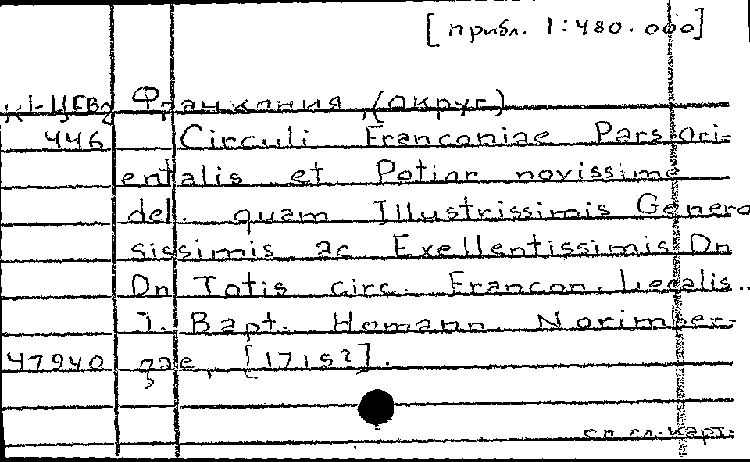 [прибл. 1:480.000]
К1-ЦСВ2 Франкония (округ)
446 Circuli Franconiae Pars ori-
entalis et Potior novissime
del. quam Illustrissimis Genero
sissimis ac Exellentissimis Dn
Dn Totis circ. Francon. Legalis..
J. Bapt. Homann. Norimber-
47940 gae, [1715?].
см сл. карт.